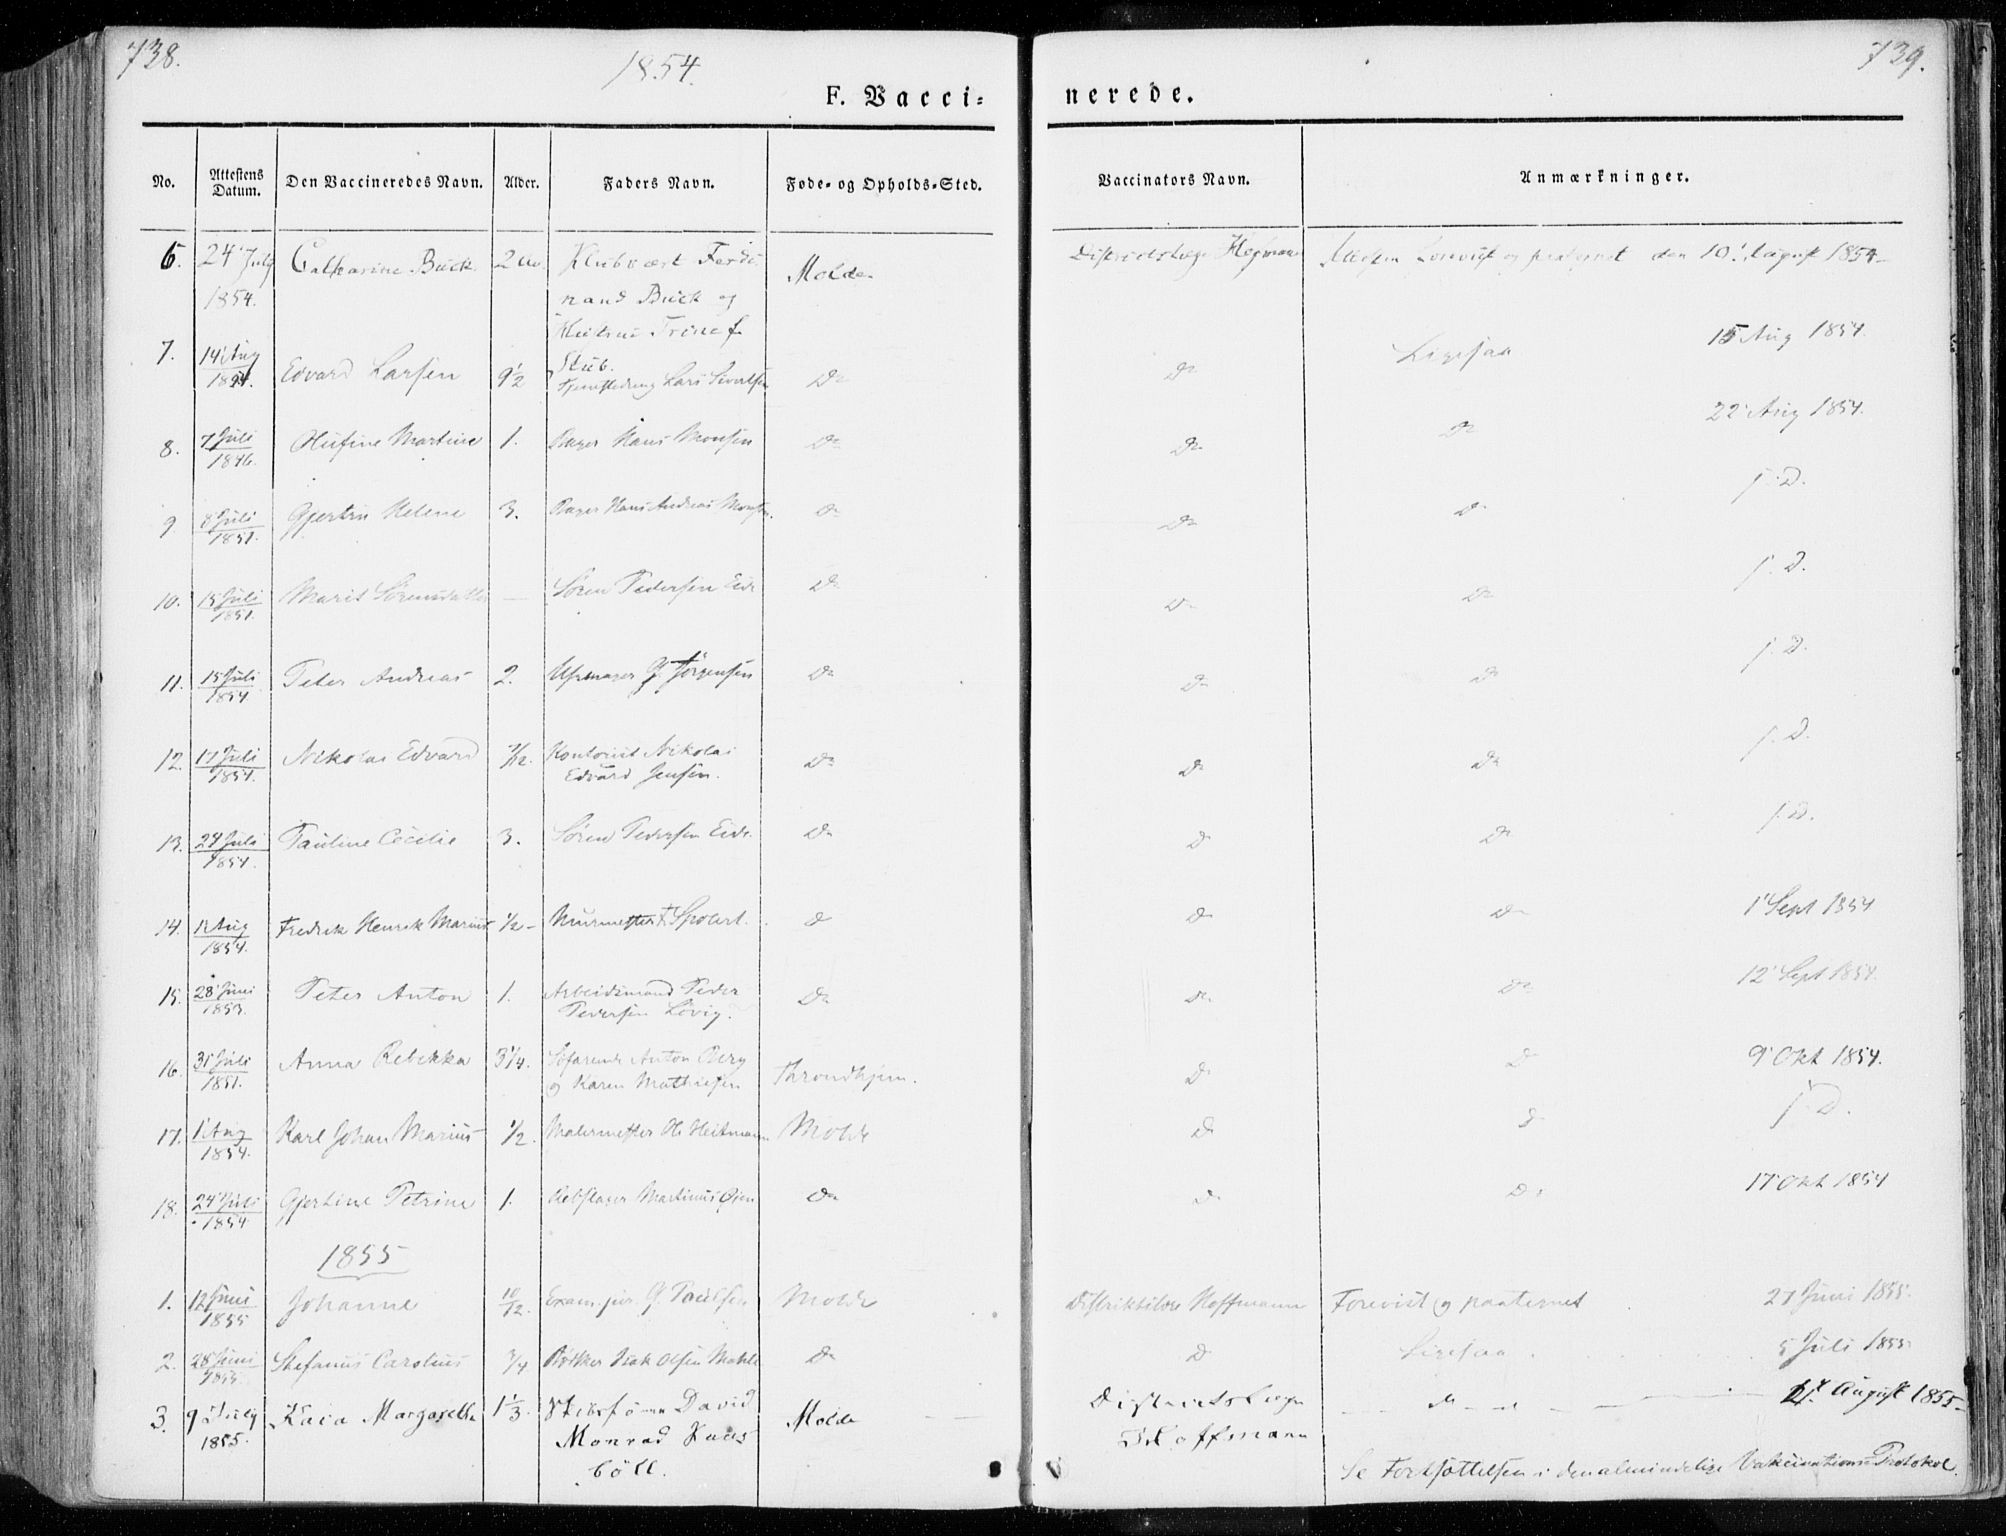 738.
1854.
739.
F. Vacci=
nerede.
No. Attestens Datum. Den Vaccineredes Navn. Alder. Faders Navn. Føde- og Opholds-Sted. Vaccinators Navn. Anmærkninger.
6. 24 July Catharine Buck 2 Klubvært Ferdi Molde den 10 August 1854
1854. nand Buck og
Hustrue Trine f.
Stub.
7. 14 Aug 1854. Edvard Larsen 9 1/2 Lars Sivertsen Do Do Ligesaa 15 Aug 1854.
8. 7 Juli 1846. Olufine Martine 1. Bager Hans Monsen Do Do Do 22 Aug 1854.
9. 8 Juli 1851. Gjertru Helene 3. Bager Hans Andreas Monsen. Do Do Do s. D.
10. 15 Juli 1851. Marit Sørensdatter — Søren Pedersen Eide Do Do Do s. D.
11. 15 Juli 1854 Peter Andreas 2. Urmager G. Jørgensen Do Do Do s. D.
12. 17 Juli 1854. Nikolai Edvard /12. Kontorist Nikolai Do Do Do s. D.
Edvard Jensen.
13. 24 Juli 1854. Pauline Cecilie 3. Søren Pedersen Eide. Do Do Do s. D.
14. Aug 1854. Fredrik Henrik Marius 1/2 - Murmester Do Do Do 1 Sept 1854
15. 28 Juni 1853. Peter Anton 1. Arbeidsmand Peder Do Do Do 12 Sept 1854.
Pedersen Løvig.
16. 31 Juli 1851. Anna Rebekka 3 1/4. Søfarende Anton Berg Throndhjem. Do Do 9 Okt 1854.
og Karen Mathiesen
17. 1 Aug 1854. Karl Johan Marius 1/2. Malermester Ole Heitmann Molde Do Do s. D.
18. 24 Juli 1854 Gjertine Petrine 1. Rebslager Martinus Øien Do Do Do 17 Okt 1854
1855
1. 12 Juni 1855 Johanne 10/12. Exam. jur. G. Paulsen Molde Distriktslæge Hoffmann Forevist og paategnet 27 Juni 1855.
2. 28 Juni 1855. Stefanus Carolius 3/4 Bødker Isak Olsen Do Do Ligesaa 5 Juli 1855
3. 9 July Kaia Margarethe 1 1/3. David Molde Districtslæge Do August 1855
1855. Monrad Kaas Hoffmann
böll.
Se Fortsættelsen i den almindelige Vakcinations Protokol.